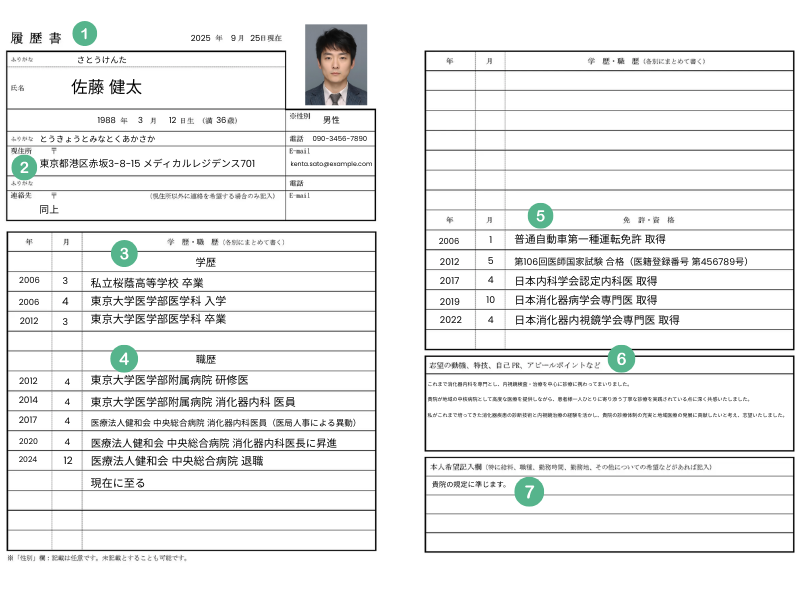 履歴書
1
2025 年 9月 25日現在
ふりがな さとうけんた
氏名 佐藤 健太
1988 年 3 月 12 日生 (満 36歳)
※性別 男性
ふりがな とうきょうとみなとくあかさか
電話 090-3456-7890
現住所 〒
2
東京都港区赤坂3-8-15 メディカルレジデンス701
E-mail
kenta.sato@example.com
ふりがな
電話
連絡先 〒 (現住所以外に連絡を希望する場合のみ記入)
同上
E-mail
年 月 学 歴・職 歴 (各別にまとめて書く)
3
学歴
2006 3 私立桜蔭高等学校 卒業
2006 4 東京大学医学部医学科 入学
2012 3 東京大学医学部医学科 卒業
4
職歴
2012 4 東京大学医学部附属病院 研修医
2014 4 東京大学医学部附属病院 消化器内科 医員
2017 4 医療法人健和会 中央総合病院 消化器内科医員(医局人事による異動)
2020 4 医療法人健和会 中央総合病院 消化器内科医長に昇進
2024 12 医療法人健和会 中央総合病院 退職
現在に至る
※「性別」欄:記載は任意です。未記載とすることも可能です。
年 月 学 歴・職 歴 (各別にまとめて書く)
5
年 月 免 許・資 格
2006 1 普通自動車第一種運転免許 取得
2012 5 第106回医師国家試験 合格(医籍登録番号 第456789号)
2017 4 日本内科学会認定内科医 取得
2019 10 日本消化器病学会専門医 取得
2022 4 日本消化器内視鏡学会専門医 取得
志望の動機、特技、自己PR、アピールポイントなど
6
これまで消化器内科を専門とし、内視鏡検査・治療を中心に診療に携わってまいりました。
貴院が地域の中核病院として高度な医療を提供しながら、患者様一人ひとりに寄り添う丁寧な診療を実践されている点に深く共感いたしました。
私がこれまで培ってきた消化器疾患の診断技術と内視鏡治療の経験を活かし、貴院の診療体制の充実と地域医療の発展に貢献したいと考え、志望いたしました。
本人希望記入欄 (特に給料、職種、勤務時間、勤務地、その他についての希望などがあれば記入)
貴院の規定に準じます。
7